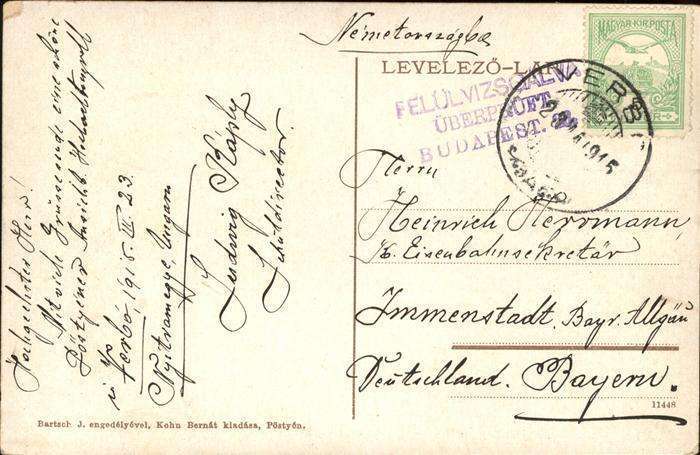 Németországba
LEVELEZŐ-LAP
MAGYAR KIR. POSTA
FELÜLVIZSGÁLVA
ÜBERPRÜFT
BUDAPEST.
VERB
1915
Herrn
Heinrich Herrmann,
K. Eisenbahnsekretär
Immenstadt, Bayr. Allgäu
Deutschland. Bayern.
11448
Hochgeehrter Herr!
Mit viele Grüsse sende eine schöne
Pöstyéner Ansicht. Hochachtungsvoll
Verbó 1915. III. 23.
Nyitramegye, Ungarn
Ludwig Káply
Schuldirector.
Bartsch J. engedélyével, Kohn Bernát kiadása, Pöstyén.